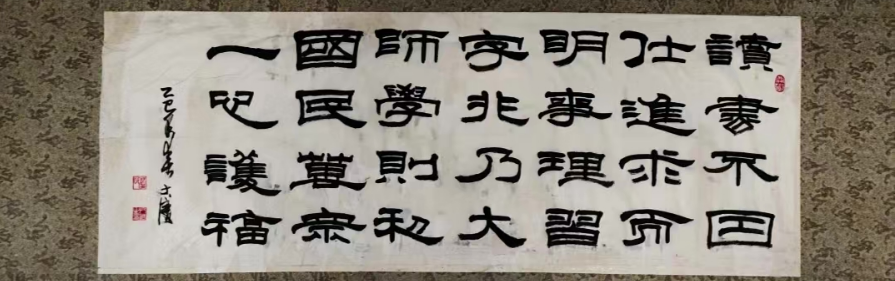 讀書不因
仕進求而
明事理習
字非乃大
師學則和
國民萬衆
一心護福
乙巳